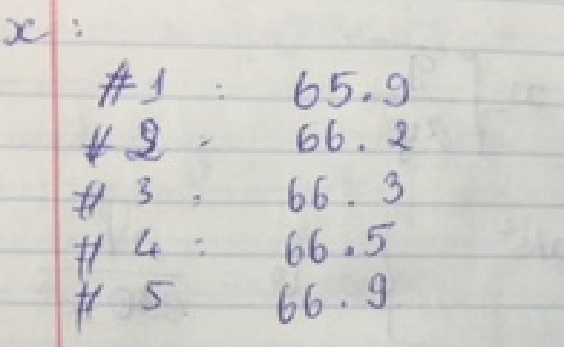 x :
#1 : 65.9
# 2 - 66.2
# 3 : 66.3
# 4 : 66.5
# 5 66.9